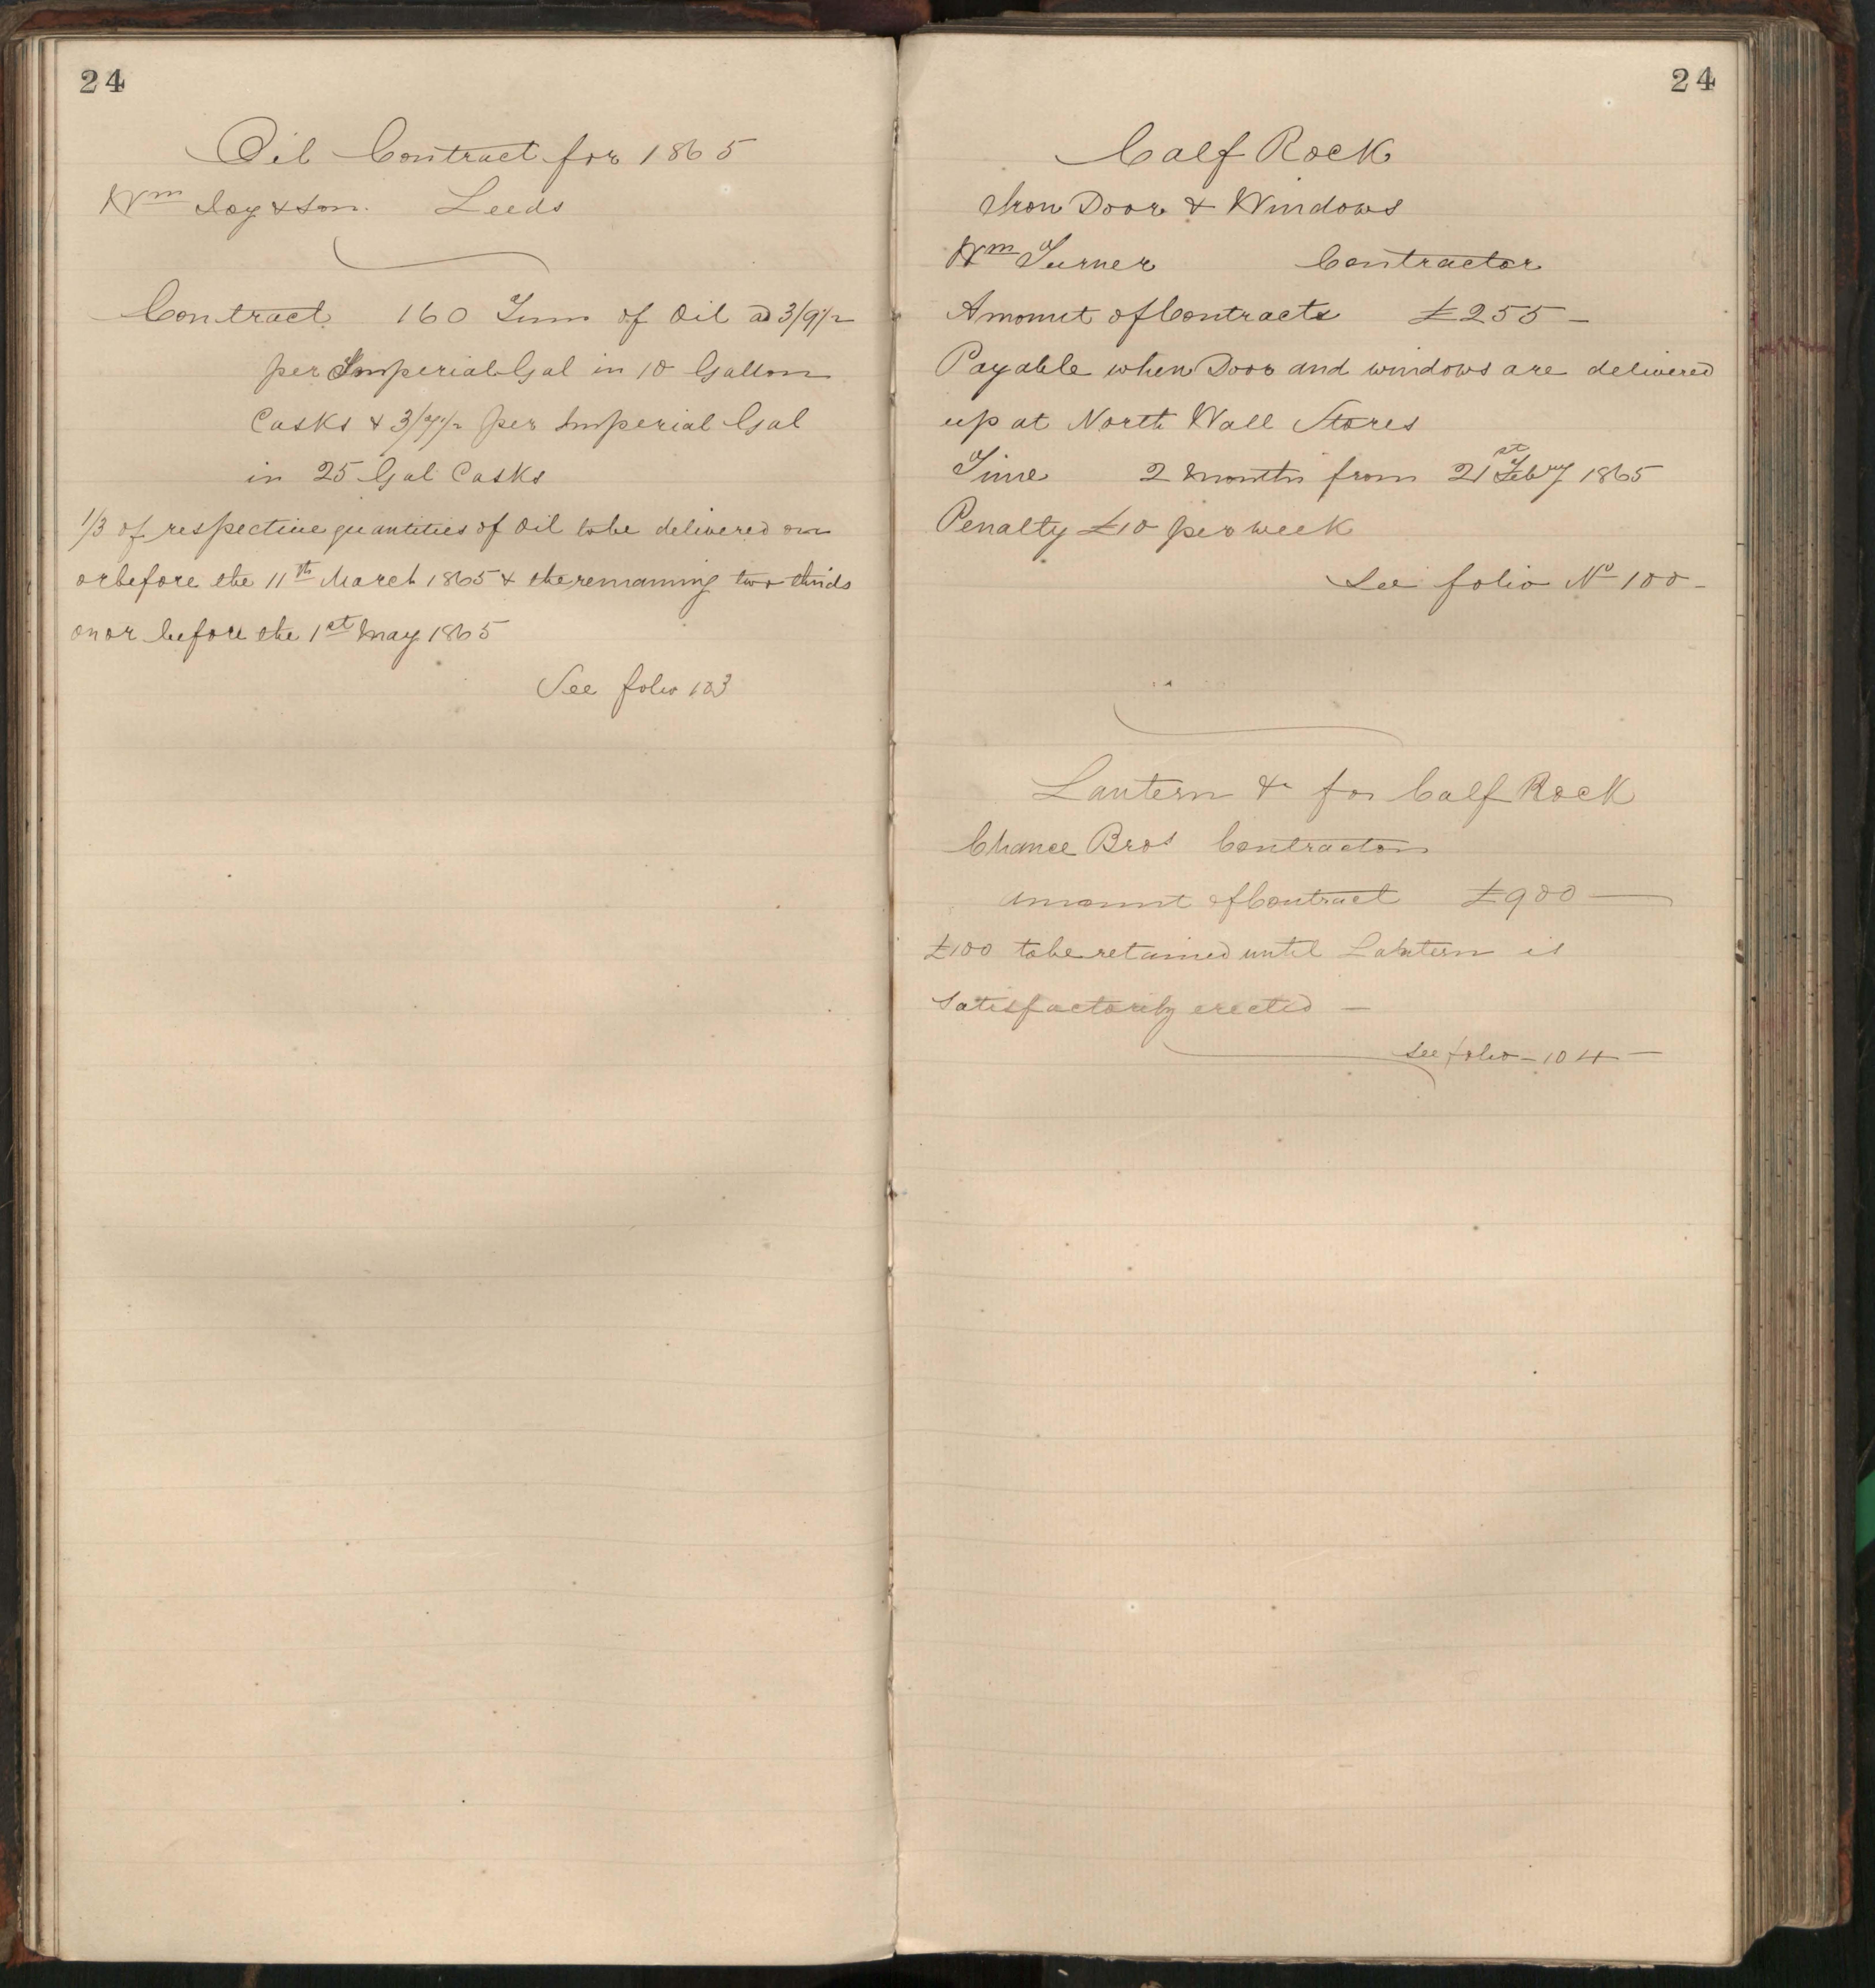 24
Oil Contract for 1865
Wm & Son. Leeds
Contract 160 Tuns of Oil at 3/9½
per Imperial Gal in 10 Gallon
Casks & 3/7½ per Imperial Gal
in 25 Gal Casks
1/3 of respective quantities of Oil to be delivered on
or before the 11th March 1865 & the remaining two thirds
on or before the 1st May 1865
See folio 103
24
Calf Rock
Iron Door & Windows
Wm Turner Contractor
Amount of Contracts £255 –
Payable when Door and windows are delivered
up at North Wall Stores
Time 2 months from 21st Feby 1865
Penalty £10 per week
See folio No 100 –
Lantern &c for Calf Rock
Chance Bros Contractors
Amount of Contract £900 —
£100 to be retained until Lantern is
Satisfactorily erected —
See folio – 104 —